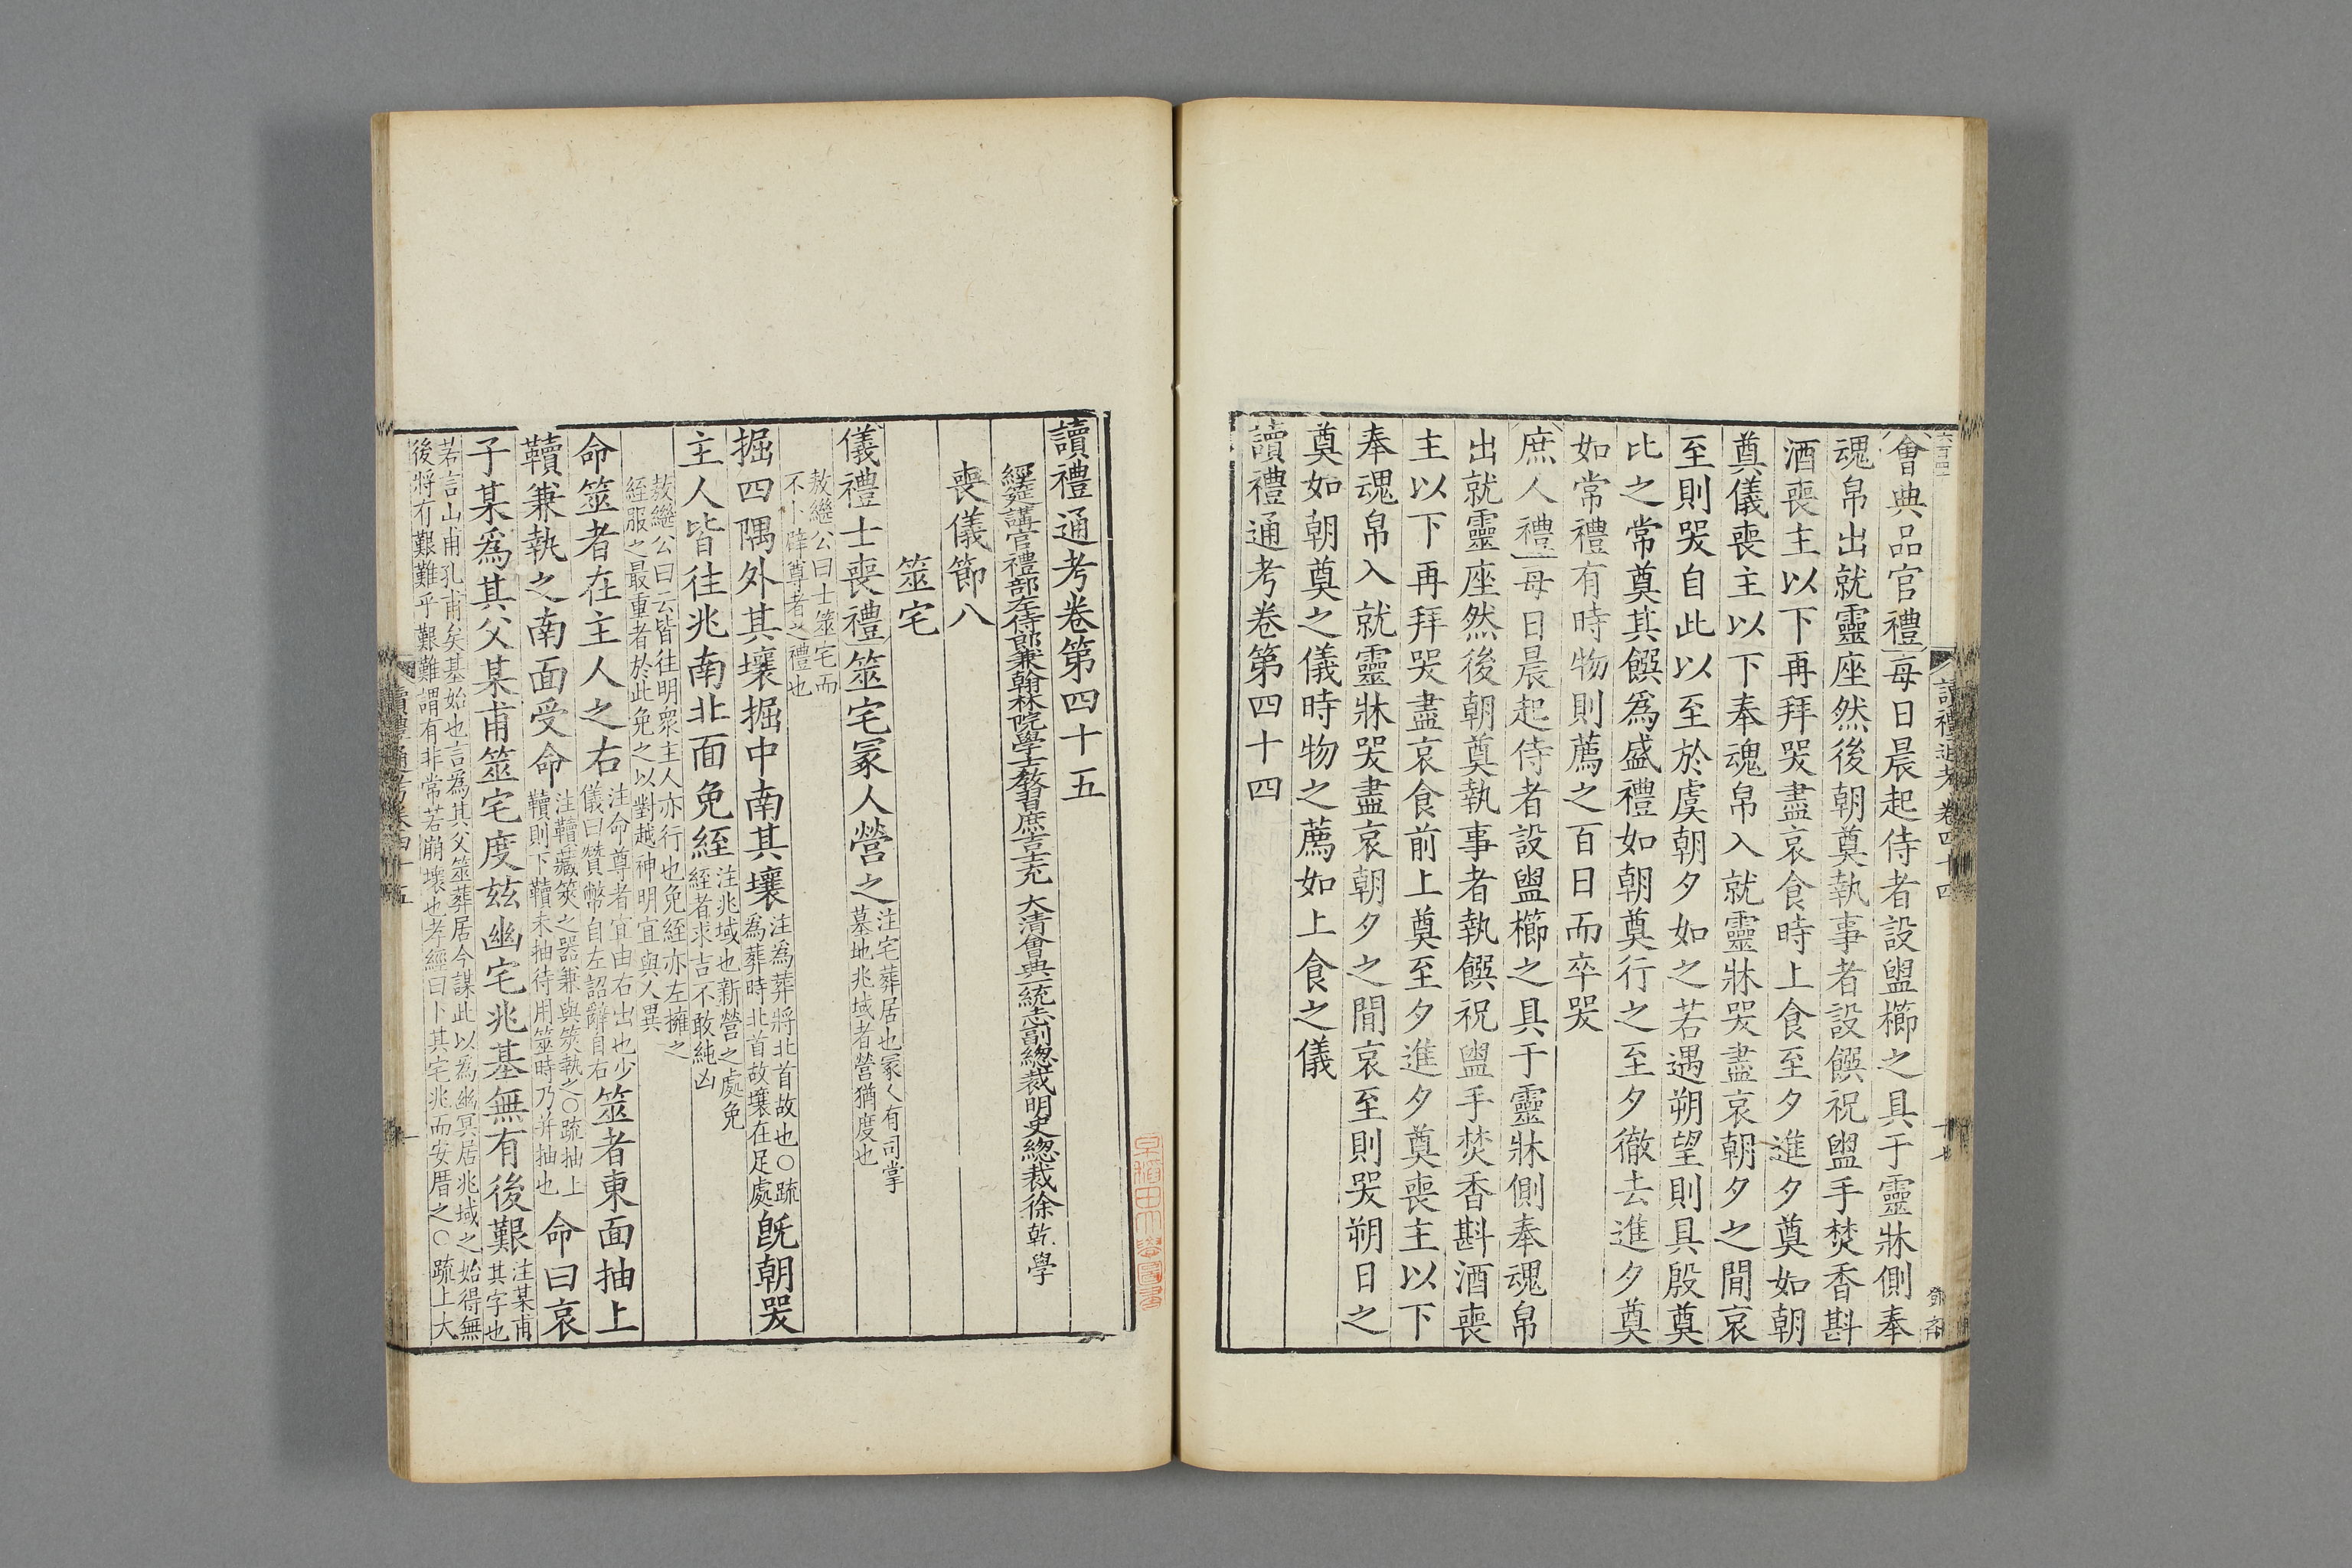 會典品官禮每日晨起侍者設盥櫛之具于靈牀側奉
魂帛出就靈座然後朝奠執事者設饌祝盥手焚香斟
酒喪主以下再拜哭盡哀食時上食至夕進夕奠如朝
奠儀喪主以下奉魂帛入就靈牀哭盡哀朝夕之間哀
至則哭自此以至於虞朝夕如之若遇朔望則具殷奠
比之常奠其饌爲盛禮如朝奠行之至夕徹去進夕奠
如常禮有時物則薦之百日而卒哭
庶人禮每日晨起侍者設盥櫛之具于靈牀側奉魂帛
出就靈座然後朝奠執事者執饌祝盥手焚香斟酒喪
主以下再拜哭盡哀食前上奠至夕進夕奠喪主以下
奉魂帛入就靈牀哭盡哀朝夕之間哀至則哭朔日之
奠如朝奠之儀時物之薦如上食之儀
讀禮通考卷第四十四
讀禮通考卷四十四
讀禮通考卷第四十五
經筵講官禮部左侍郎兼翰林院學士教習庶吉士充大清會典一統志副總裁明史總裁徐乾學
喪儀節八
筮宅
儀禮士喪禮筮宅冢人營之注宅葬居也冢人有司掌
墓地兆域者營猶度也
敖繼公曰士筮宅而
不卜辟尊者之禮也
掘四隅外其壤掘中南其壤注爲葬將北首故也○疏
爲葬時北首故壤在足處既朝哭
主人皆往兆南北面免絰注兆域也新營之處免
絰者求吉不敢純凶
敖繼公曰云皆往明衆主人亦行也免絰亦左擁之
絰服之最重者於此免之以對越神明宜與人異
命筮者在主人之右注命尊者宜由右出也少
儀曰贊幣自左詔辭自右筮者東面抽上
韇兼執之南面受命注韇藏筴之器兼與筴執之○疏抽上
韇則下韇未抽待用筮時乃并抽也命曰哀
子某爲其父某甫筮宅度茲幽宅兆基無有後艱注某甫
其字也
若言山甫孔甫矣基始也言爲其父筮葬居今謀此以爲幽冥居兆域之始得無
後將有艱難乎艱難謂有非常若崩壞也孝經曰卜其宅兆而安厝之○疏上大